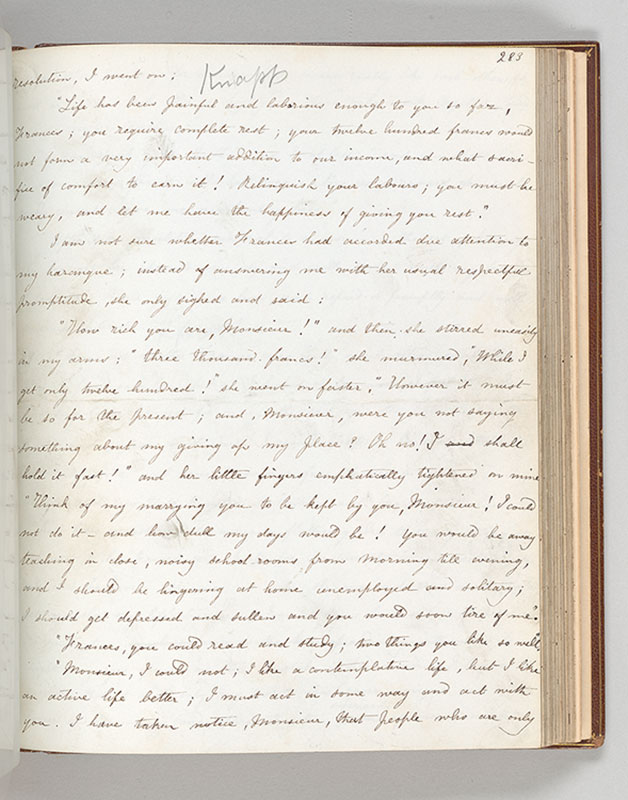 283
resolution, I went on;
Knapp
"Life has been painful and laborious enough to you so far,
Frances; you require complete rest; your twelve hundred francs would
not form a very important addition to our income, and what sacri-
fice of comfort to earn it! Relinquish your labours; you must be
weary, and let me have the happiness of giving you rest."
I am not sure whether Frances had accorded due attention to
my harangue; instead of answering me with her usual respectful
promptitude, she only sighed and said:
"How rich you are, Monsieur!" and then she stirred uneasily
in my arms; "three thousand francs!" she murmured, "While I
get only twelve hundred!" she went on faster, "However it must
be so for the present; and, Monsieur, were you not saying
something about my giving up my place? Oh no! I and shall
hold it fast!" and her little fingers emphatically tightened on mine
"Think of my marrying you to be kept by you, Monsieur! I could
not do it – and how dull my days would be! You would be away
teaching in close, noisy school-rooms from morning till evening,
and I should be lingering at home unemployed and solitary;
I should get depressed and sullen and you would soon tire of me".
"Frances, you could read and study; two things you like so well
"Monsieur, I could not; I like a contemplative life, but I like
an active life better; I must act in some way and act with
you. I have taken notice, Monsieur, that people who are only